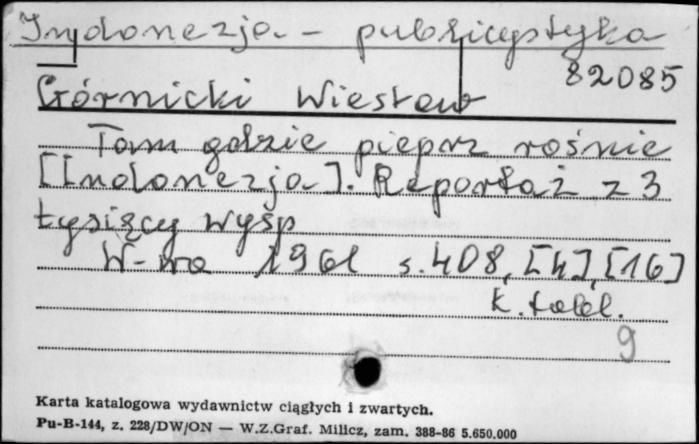 Indonezja - publicystyka
82085
Górnicki Wiesław
Tam gdzie pieprz rośnie
[Indonezja]. Reportaż z 3
tysięcy wysp
W-wa 1961 s. 408, [4], [16]
k. tabl.
9
Karta katalogowa wydawnictw ciągłych i zwartych.
Pu-B-144, z. 228/DW/ON — W.Z.Graf. Milicz, zam. 388-86 5.650.000